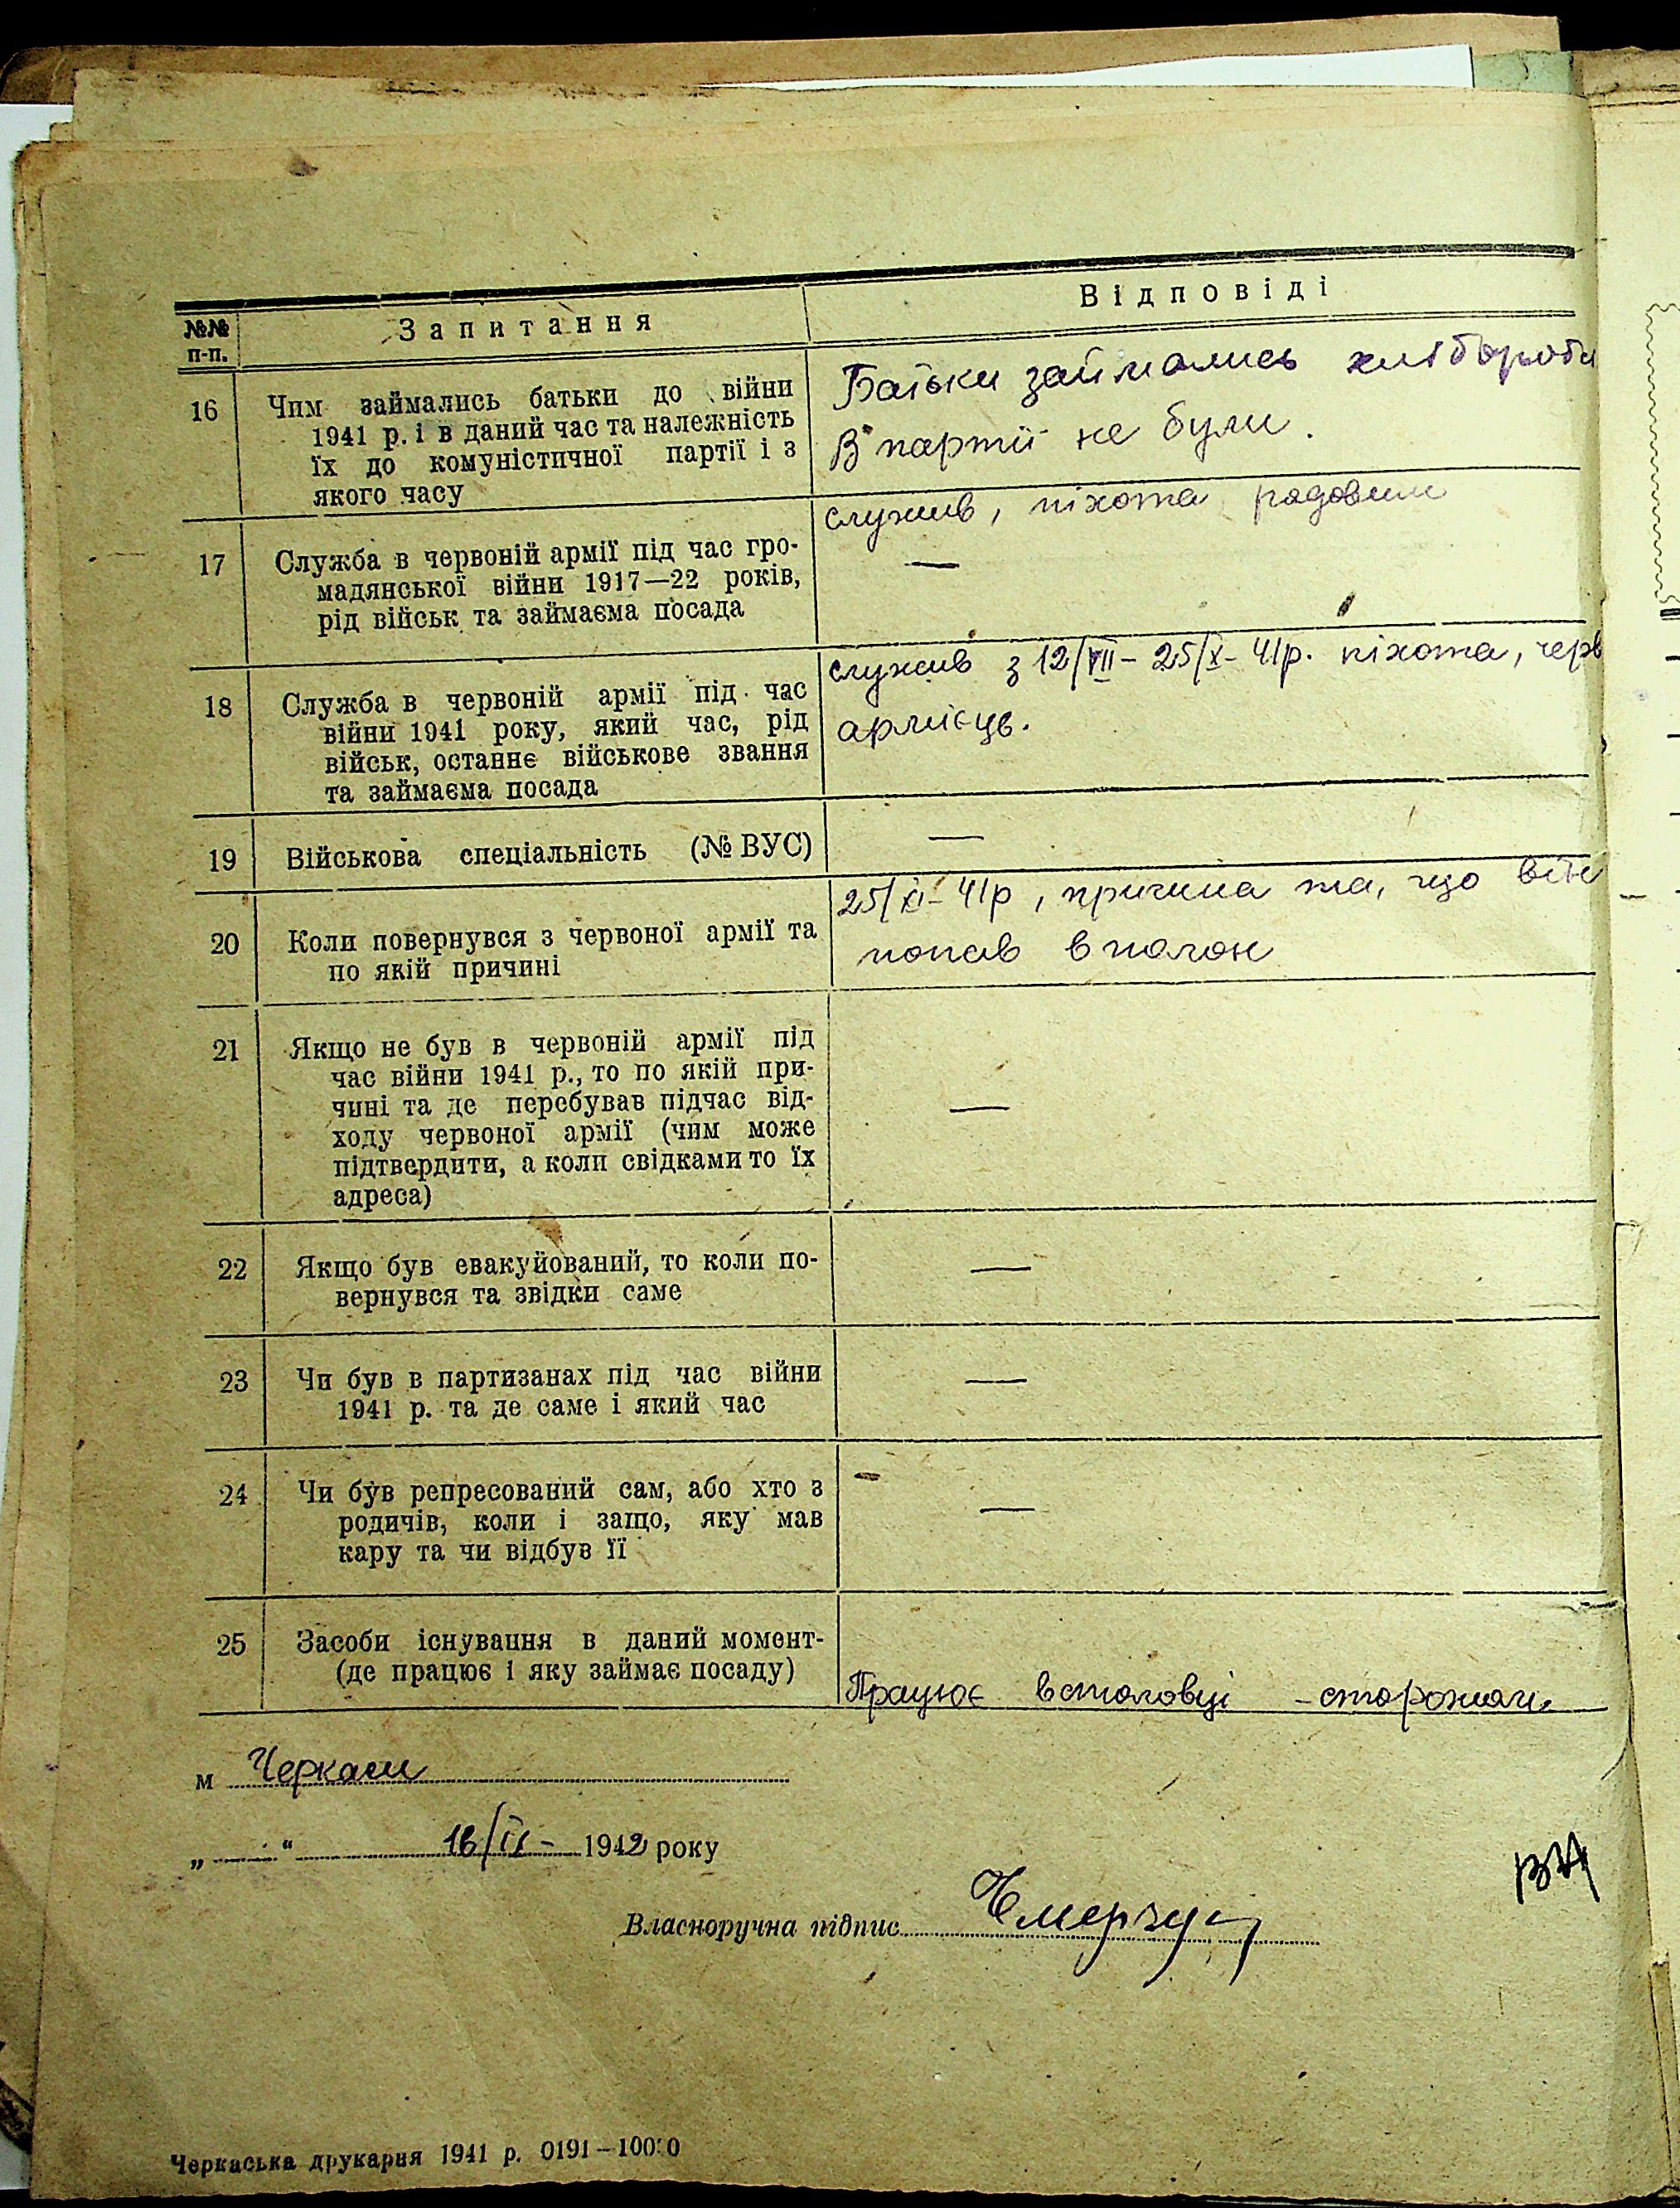 №№ п-п.
Запитання
Відповіді
16
Чим займались батьки до війни
1941 р. і в даний час та належність
їх до комуністичної партії і з
якого часу
Батьки займались хліборобс
В партії не були.
17
Служба в червоній армії під час гро-
мадянської війни 1917—22 років,
рід військ та займаєма посада
служив, піхота рядовим
—
18
Служба в червоній армії під час
війни 1941 року, який час, рід
військ, останнє військове звання
та займаєма посада
служив з 12/VII – 25/X – 41р. піхота, черв
армієць.
19
Військова спеціальність (№ ВУС)
—
20
Коли повернувся з червоної армії та
по якій причині
25/XI – 41р, причина та, що
попав в полон
21
Якщо не був в червоній армії під
час війни 1941 р., то по якій при-
чині та де перебував підчас від-
ходу червоної армії (чим може
підтвердити, а коли свідками то їх
адреса)
—
22
Якщо був евакуйований, то коли по-
вернувся та звідки саме
—
23
Чи був в партизанах під час війни
1941 р. та де саме і який час
—
24
Чи був репресований сам, або хто з
родичів, коли і защо, яку мав
кару та чи відбув її
—
25
Засоби існування в даний момент-
(де працює і яку займає посаду)
Працює встоловці – сторожом
м Черкаси
„ “ 1942 року
Власноручна підпис
Черкаська друкарня 1941 р. 0191–10000